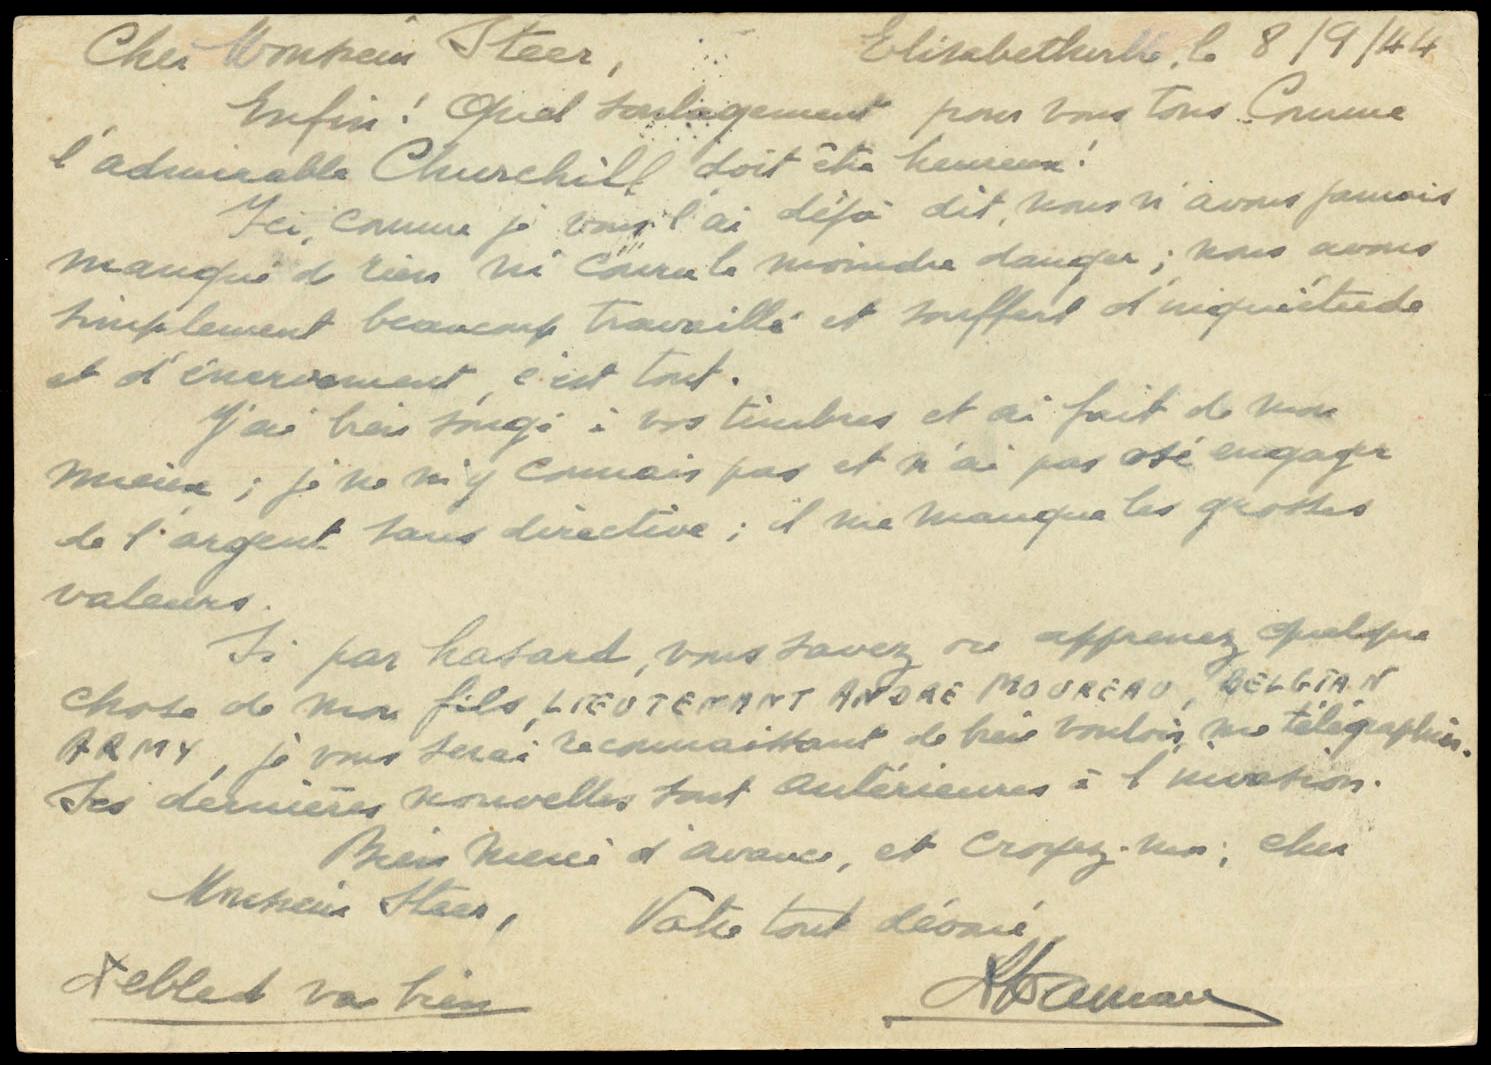 Cher Monsieur Steer, Elisabethville, le 8/9/44
Enfin! Quel soulagement pour vous tous. Comme
l'admirable Churchill doit être heureux!
Ici, comme je vous l'ai déjà dit, nous n'avons jamais
manqué de rien ni couru le moindre danger; nous avons
simplement beaucoup travaillé et souffert d'inquiétude
et d'énervement, c'est tout.
J'ai bien songé à vos timbres et ai fait de mon
mieux; je ne m'y connais pas et n'ai pas osé engager
de l'argent sans directive; il me manque les grosses
valeurs.
Si par hasard, vous savez ou apprenez quelque
chose de mon fils, LIEUTENANT ANDRE MOUREAU, BELGIAN
ARMY, je vous serai reconnaissant de bien vouloir me télégraphier.
Ses dernières nouvelles sont antérieures à l'invasion.
Bien merci d'avance, et croyez-moi, cher
Monsieur Steer, Votre tout dévoué,
Lebled va bien